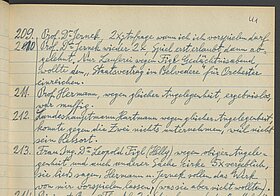 41
209. Prof. Dr. Jernek, 2x Anfrage wann ich ich vorspielen darf.
210 Prof. Dr. Jernek wieder 2x, Spiel erst erlaubt dann ab
gelehnt. Nur wegen Figl Gedächtnisabend
wollte den, Staatsvertrag im Belvedere für Orchester
einreichen.
211. Prof. Hermann, wegen gleicher Angelegenheit, ergebnislos,
war muffig.
212. Landeshauptmann Hartmann wegen gleicher Angelegenheit,
konnte gegen die Zwei nichts unternehmen, weil nicht
sein Ressort.
213. Frau Ing. Dr. Leopold Figl (Hilde) wegen obiger Angele-
genheit und auch anderer Sache Kirke. Ex vergeblich
sie
sagen Hermann u. Jernek sollen das Werk
von mir vorspielen lassen, was sie aber nicht wollten